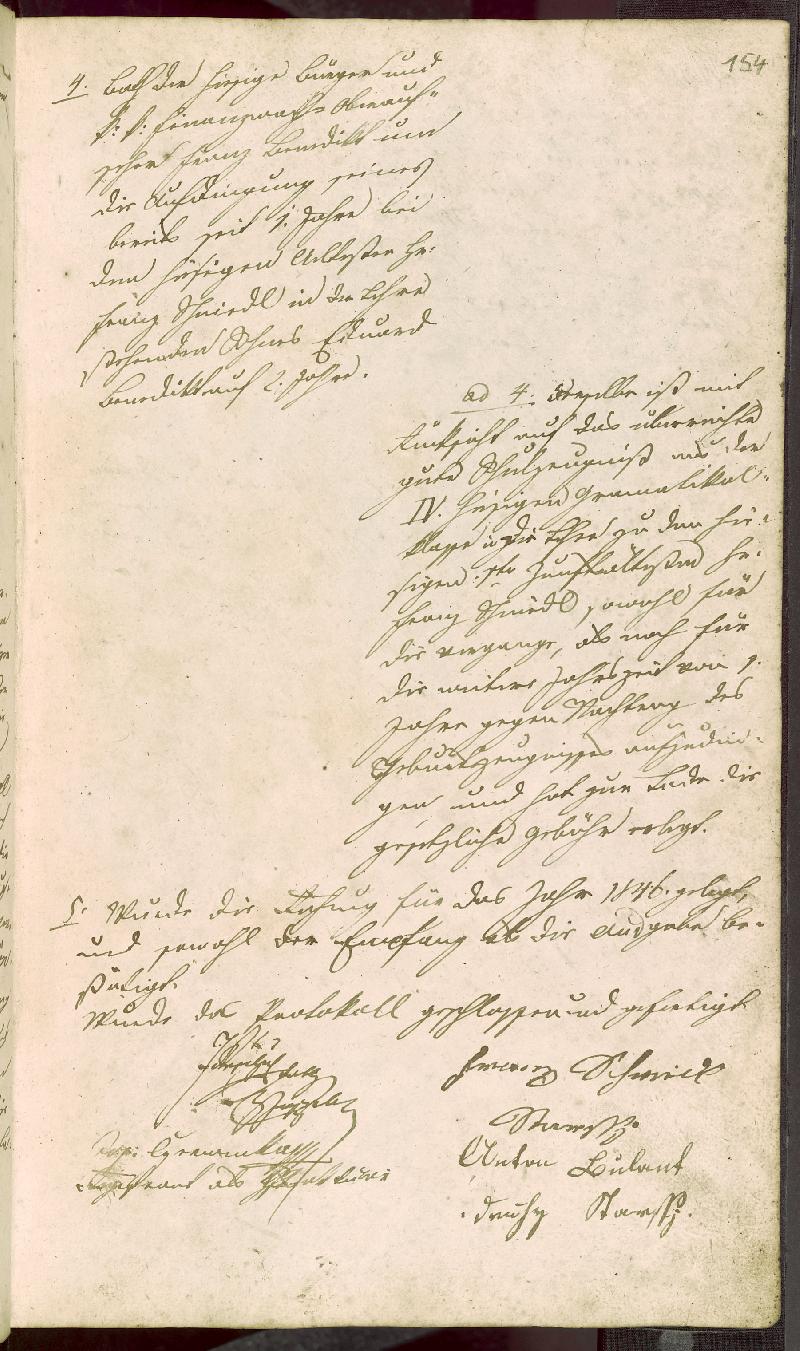 154
4. Bath der hiesige Bürger und
k: k: Finanzwach Oberauf-
seher Franz Benedikt um
die Aufdingung seines
bereits seit 1. Jahre bei
dem hiesigen Ältesten Hr:
Franz Schmiedl in der Lehre
stehenden Sohnes Eduard
Benedikt auf 2. Jahre.
ad 4. Derselbe ist mit
Rücksicht auf das überreichte
gute Schulzeugniß aus der
IV. hiesigen Gramatikal-
klasse in die Lehre zu dem hie-
sigen Zunftältesten Hr:
Franz Schmiedl sowohl für
die vergange, als noch für
die weitere Jahrszeit von 1.
Jahre gegen Nachtrag des
Geburtszeugnisses aufzudin-
gen und hat zur Lade die
gesetzliche Gebühr erlegt.
5. Wurde die Rechnung für das Jahr 1846. gelegt,
und sowohl der Empfang als die Ausgabe be-
stätigt.
Wurde das Protokoll geschlossen und gefertigt
Franz Schmiedl
Starssy
Anton Bulant
druhy Starssy.
als